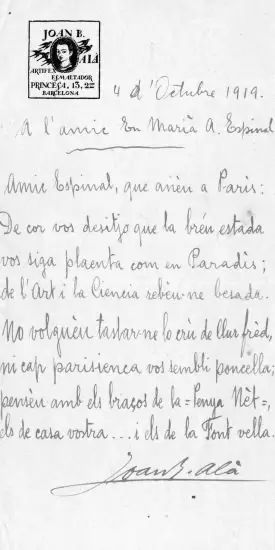 JOAN B.
ALÁ
ARTIFEX
ESMALTADOR
PRINCESA, 13, 2ⁿ
BARCELONA
4 d'Octubre 1919.
A l'amic En Marià A. Espinal
Amic Espinal, que anèu a Paris:
De cor vos desitjo que la brèu estada
vos siga plaenta com en Paradis;
de l'Art i la Ciencia rebèu-ne besada.
No volguèu tastar-ne lo crù de llur frèd,
ni cap parisienca vos sembli poncella;
pensèu amb els braços de la =Penya Nèt=,
els de casa vostra... i els de la Font vella.
Joan B. Alà